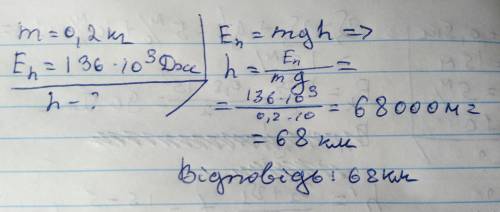 m = 0,2 кг
Eп = 136·10³ Дж
h - ?
Eп = mgh =>
h = Eп/mg =
= 136·10³/0,2·10 = 68000 м =
= 68 км
Відповідь: 68 км